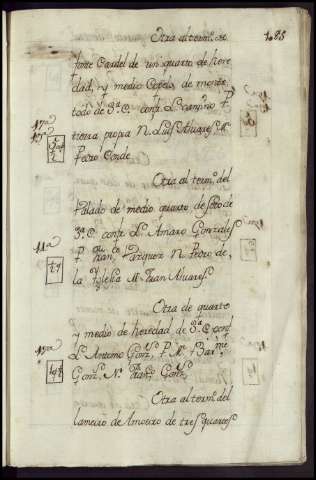 Otra al term.º de
185
fonte Cardel de un quarto de here
dad, y medio Copelo de monte
todo de 3.ª C. confr. L. camino P.
tierra propia N. Luis Alvares M.
Pedro Conde
Otra al term.º del
Balado de medio quarto de soto de
3.ª C. confr. L. Amaro Gonzales
P. Fran.co Vazquez N. Pedro de
la Yglesia M. Juan Alvares
11.ª
Otra de quarto
y medio de heredad de 3.ª C. conf.
L. Antonio Gonz.s P. M. Bar.me
Gonz.s N. Fran.co Gonz.s
Otra al term.º del
lameiro de Amoeiro de tres quartos